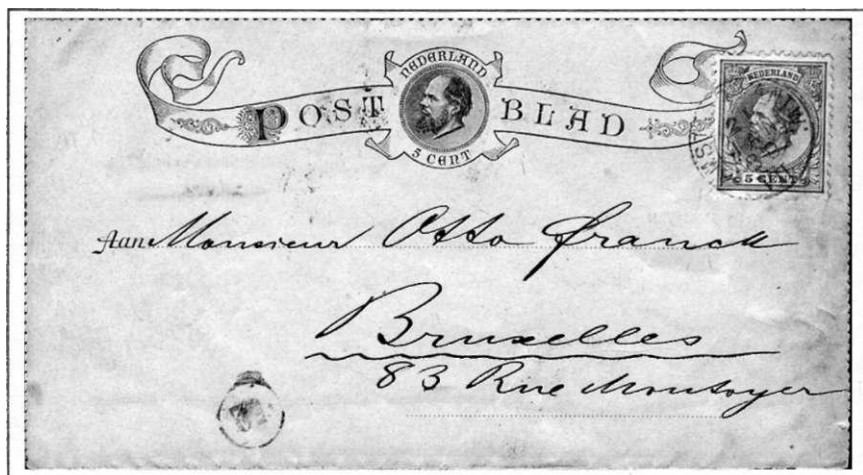 NEDERLAND
POST BLAD
5 CENT
NEDERLAND
5 CENT
Aan Monsieur Otto Franck
Bruxelles
83 Rue Montoyer